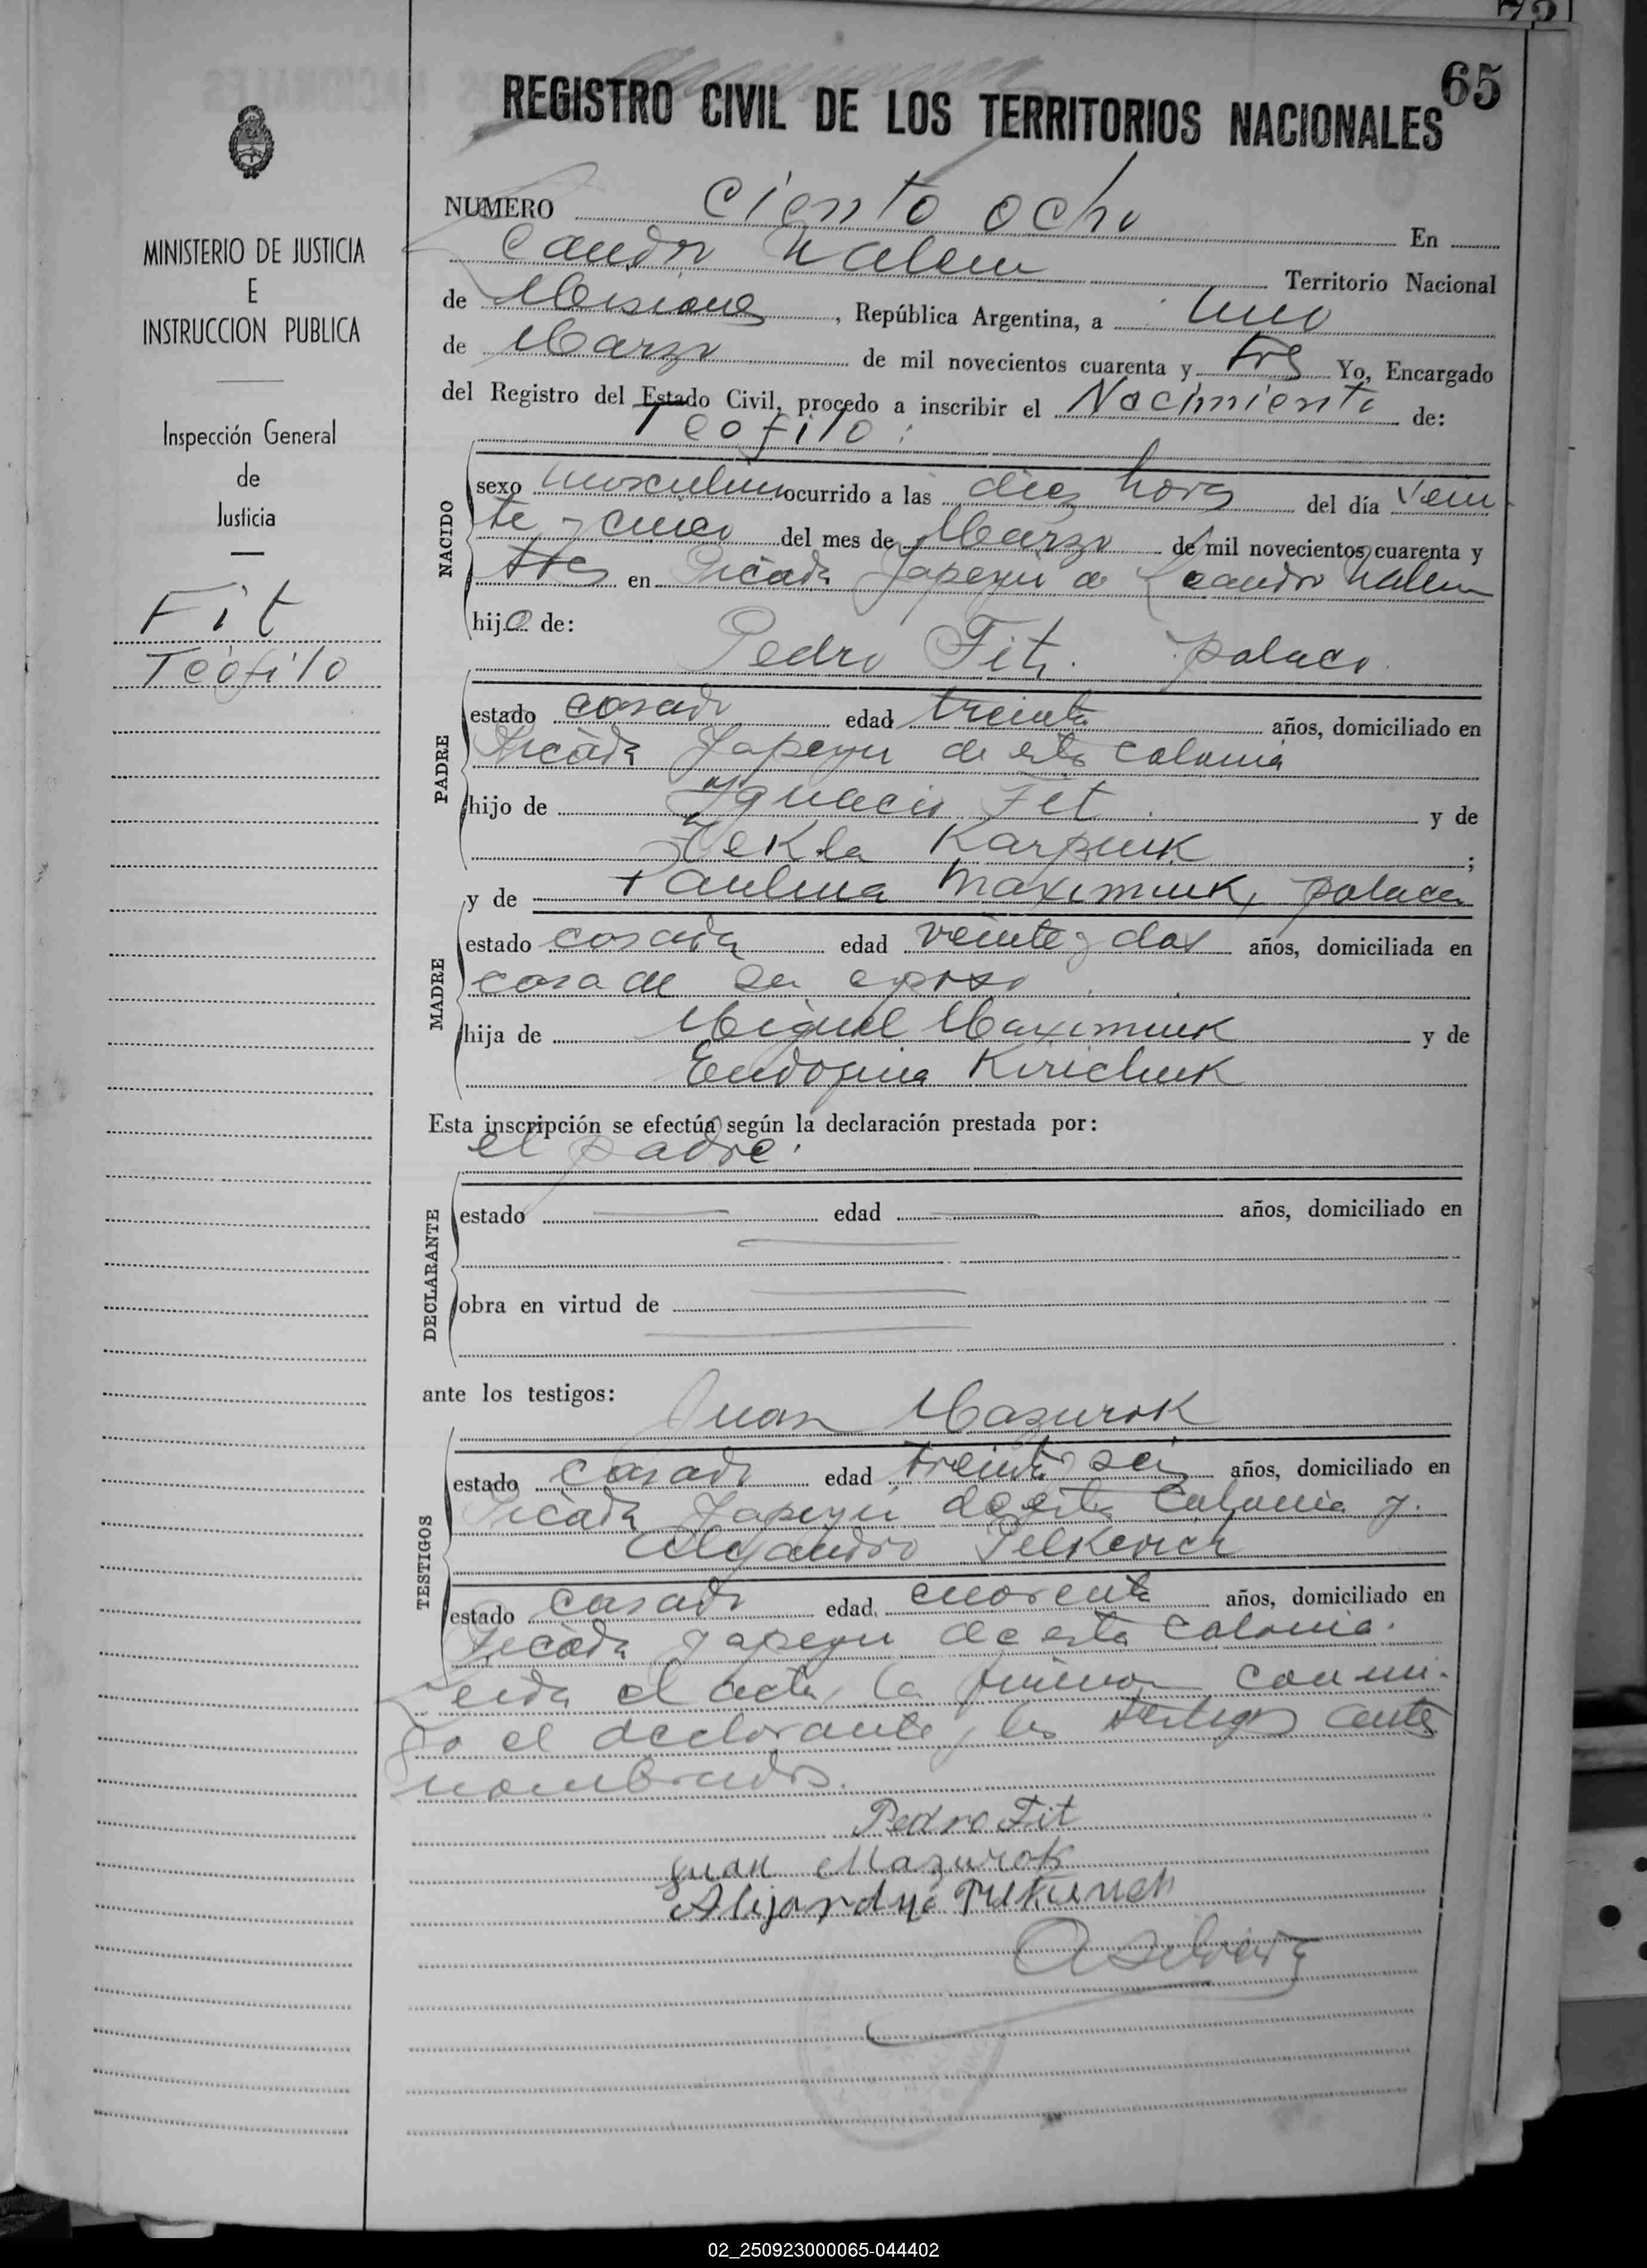 75
65
REGISTRO CIVIL DE LOS TERRITORIOS NACIONALES
MINISTERIO DE JUSTICIA
E
INSTRUCCION PUBLICA
Inspección General
de
Justicia
Fit
Teófilo
NUMERO ciento ocho En
Leandro N Alem Territorio Nacional
de Misiones, República Argentina, a uno
de Marzo de mil novecientos cuarenta y tres Yo, Encargado
del Registro del Estado Civil, procedo a inscribir el Nacimiento de:
Teofilo:
NACIDO
sexo masculino ocurrido a las diez horas del día vein
te y cinco del mes de Marzo de mil novecientos cuarenta y
tres en Picada Yapeyu de Leandro N Alem
hijo de:
Pedro Fit. polaco
PADRE
estado casado edad treinta años, domiciliado en
Picada Yapeyu de esta colonia
hijo de Ygnacio Fit y de
Tekla Karpiuk ;
y de Paulina Maximiuk, polaca
MADRE
estado casada edad veinte y dos años, domiciliada en
casa de su esposo
hija de Miguel Maximiuk y de
Eudogina Kirichuk
Esta inscripción se efectúa según la declaración prestada por:
el padre.
DECLARANTE
estado edad años, domiciliado en
obra en virtud de
ante los testigos:
Juan Mazurok
TESTIGOS
estado casado edad treinta seis años, domiciliado en
Picada Yapeyu de esta Colonia y.
Alejandro Pelkevich
estado casado edad cuarenta años, domiciliado en
Picada Yapeyu de esta Colonia.
Leida el acta, la firman conmi-
go el declarante y los testigos antes
nombrados.
Pedro Fit
Juan Mazurok
A Silveira
02_250923000065-044402